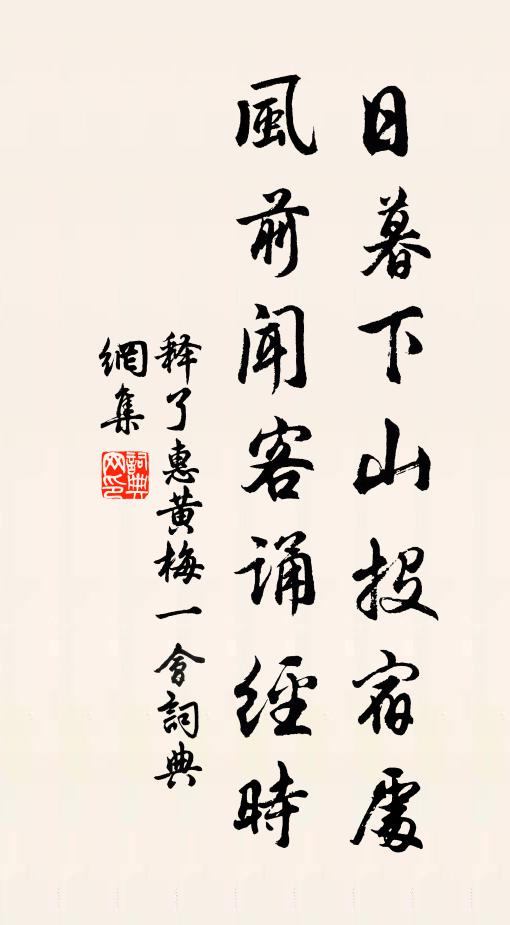 日暮下山投宿處
風前聞客誦經時
释了惠黄梅一會詞典
網集
詞典
网印